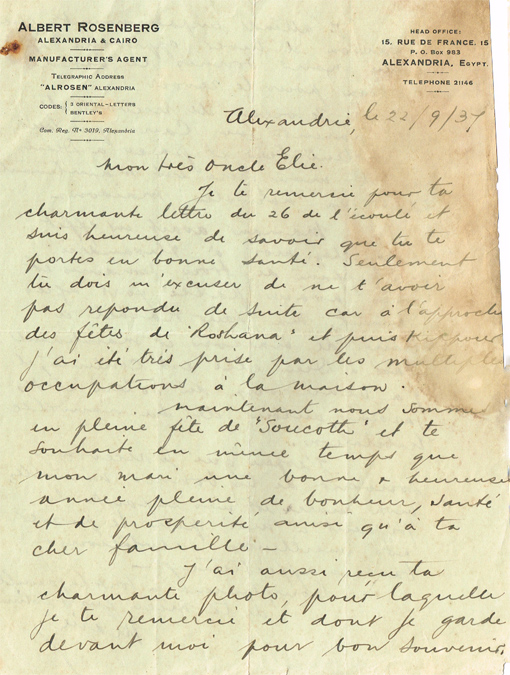 ALBERT ROSENBERG
ALEXANDRIA & CAIRO
MANUFACTURER'S AGENT
TELEGRAPHIC ADDRESS
"ALROSEN" ALEXANDRIA
CODES: { 3 ORIENTAL-LETTERS
BENTLEY'S
Com. Reg. No 3019, Alexandria
HEAD OFFICE:
15, RUE DE FRANCE, 15
P. O. Box 983
ALEXANDRIA, EGYPT.
TELEPHONE 21146
Alexandrie, le 22/9/37
Mon très Oncle Elie.
Je te remercie pour ta
charmante lettre du 26 de l'écoulé et
suis heureuse de savoir que tu te
portes en bonne santé. Seulement
tu dois m'excuser de ne t'avoir
pas repondu de suite car à l'approche
des fêtes de "Roshana" et puis Kippour
j'ai été très prise par les multiples
occupations à la maison.
Maintenant nous somme
en pleine fête de "Soucoth" et te
souhaite en même temps que
mon mari une bonne & heureuse
année pleine de bonheur, santé
et de prosperité ainsi qu'à ta
cher famille -
J'ai aussi reçu ta
charmante photo, pour laquelle
je te remercie et dont je garde
devant moi pour bon souvenir.